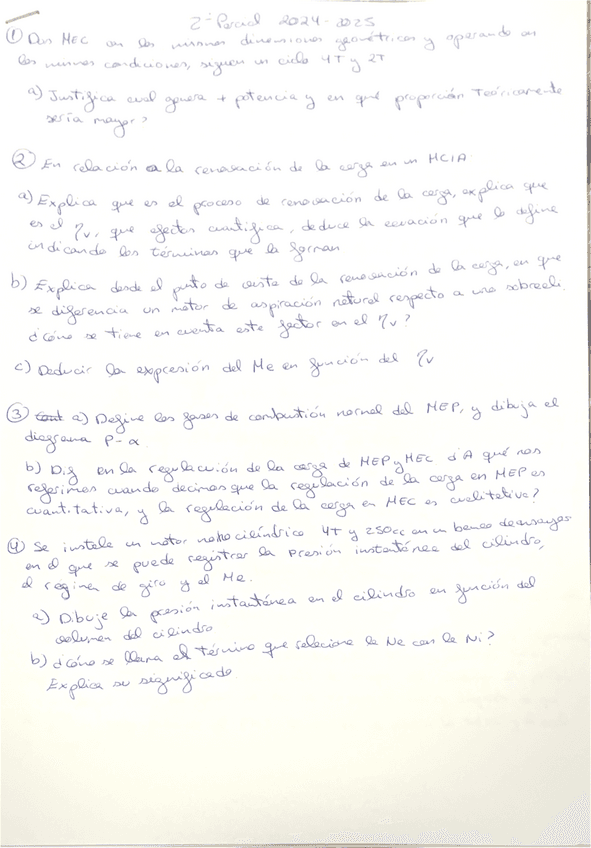 2º Parcial 2024-2025
① Dos MEC con las mismas dimensiones geométricas y operando en
las mismas condiciones, siguen un ciclo 4T y 2T
a) Justifica cual genera + potencia y en qué proporción teóricamente
sería mayor?
② En relación a la renovación de la carga en un MCIA
a) Explica que es el proceso de renovación de la carga, explica que
es el ηv, que efectos cuantifica, deduce la ecuación que lo define
indicando los términos que la forman
b) Explica desde el punto de vista de la renovación de la carga, en que
se diferencia un motor de aspiración natural respecto a uno sobreali.
¿Cómo se tiene en cuenta este factor en el ηv?
c) Deducir la expresión del Me en función del ηv
③ a) Define las fases de combustión normal del MEP, y dibuja el
diagrama P-α
b) Dif en la regulación de la carga de MEP y MEC ¿A qué nos
referimos cuando decimos que la regulación de la carga en MEP es
cuantitativa, y la regulación de la carga en MEC es cualitativa?
④ Se instala un motor monocilíndrico 4T y 250cc en un banco de ensayos
en el que se puede registrar la presión instantánea del cilindro,
el regimen de giro y el Me.
a) Dibuje la presión instantánea en el cilindro en función del
volumen del cilindro
b) ¿Cómo se llama el término que relaciona la Ne con la Ni?
Explica su significado